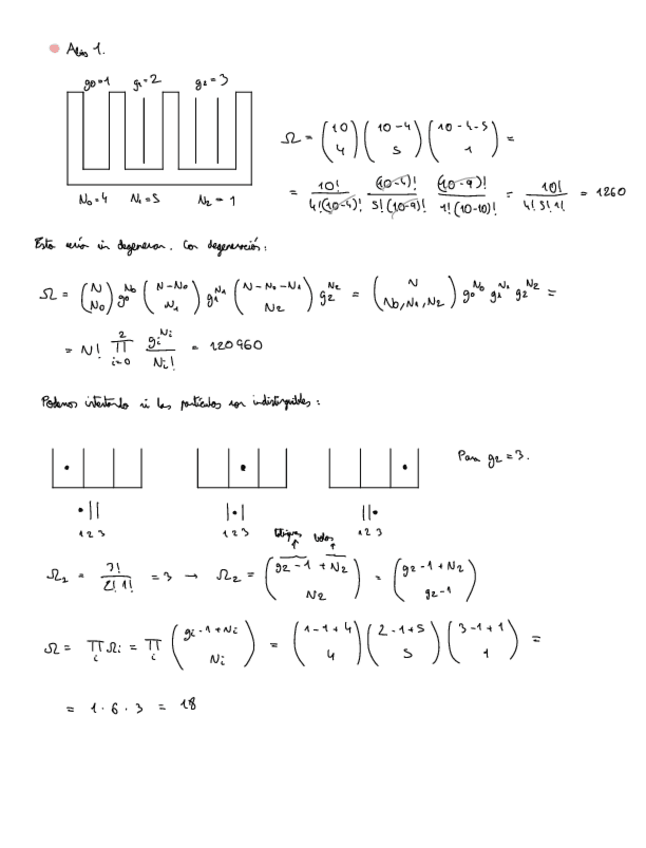 g₀=1 g₁=2 g₂=3
N₀=4 N₁=5 N₂=1
Ω = (10 4) (10-4 5) (10-4-5 1) =
= 10!/4!(10-4)! (10-4)!/5!(10-9)! (10-9)!/1!(10-10)! = 10!/4! 5! 1! = 1260
Esto sería sin degenerar. Con degeneración:
Ω = (N N₀) g₀^N₀ (N-N₀ N₁) g₁^N₁ (N-N₀-N₁ N₂) g₂^N₂ = (N N₀,N₁,N₂) g₀^N₀ g₁^N₁ g₂^N₂ =
= N! ∏ i=0 2 gᵢ^Nᵢ/Nᵢ! = 120960
Podemos intentarlo si las partículas son indistinguibles:
Para g₂=3.
•|| |•| ||•
1 2 3 1 2 3 1 2 3
Ω₂ = 3!/2! 1! = 3 → Ω₂ = (g₂-1+N₂ N₂) = (g₂-1+N₂ g₂-1)
Ω = ∏ᵢ Ωᵢ = ∏ᵢ (gᵢ-1+Nᵢ Nᵢ) = (1-1+4 4) (2-1+5 5) (3-1+1 1) =
= 1·6·3 = 18